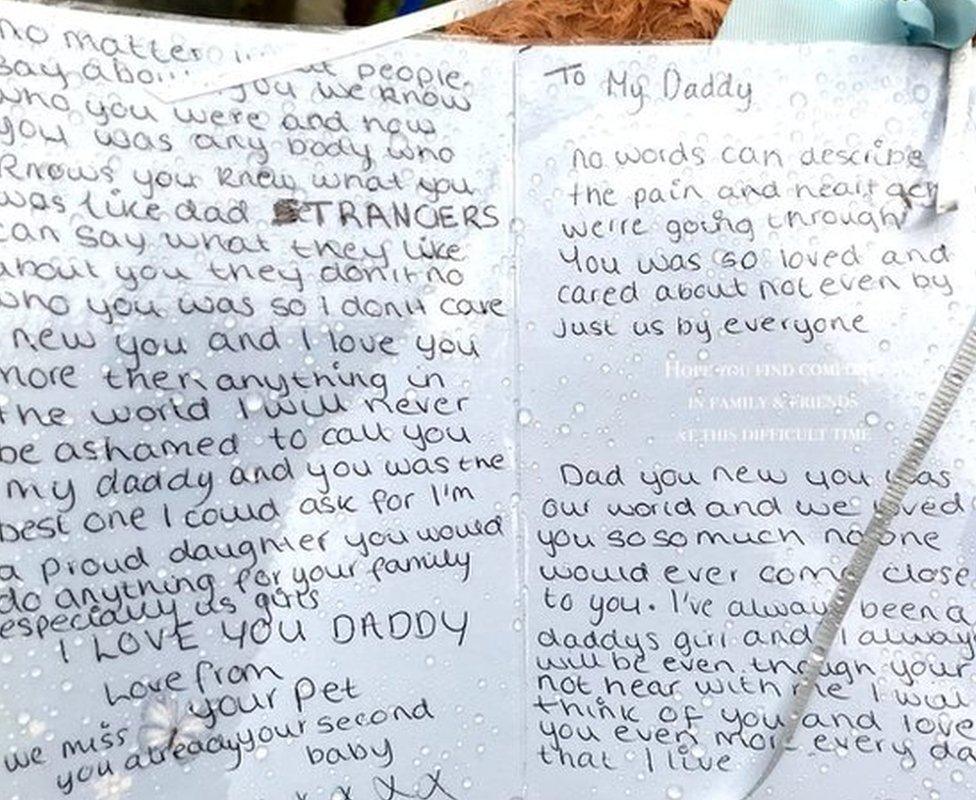 no matter
say people
who you were and how you we know
you was any body who
knows you knew what you
was like dad STRANGERS
can say what they like
about you they don't no
who you was so I don't care
new you and I love you
more then anything in
the world I will never
be ashamed to call you
my daddy and you was the
best one I could ask for I'm
a proud daughter you would
do anything for your family
especially us girls
I LOVE YOU DADDY
Love from
your pet
we miss
you already your second
baby
x x x x
To My Daddy
no words can describe
the pain and heart
we're going through
You was so loved and
cared about not even by
just us by everyone
HOPE YOU FIND COMFORT
IN FAMILY & FRIENDS
AT THIS DIFFICULT TIME
Dad you new you was
our world and we loved
you so so much no one
would ever come close
to you. I've always been a
daddys girl and I always
will be even though your
not hear with me I will
think of you and love
you even more every da
that I live